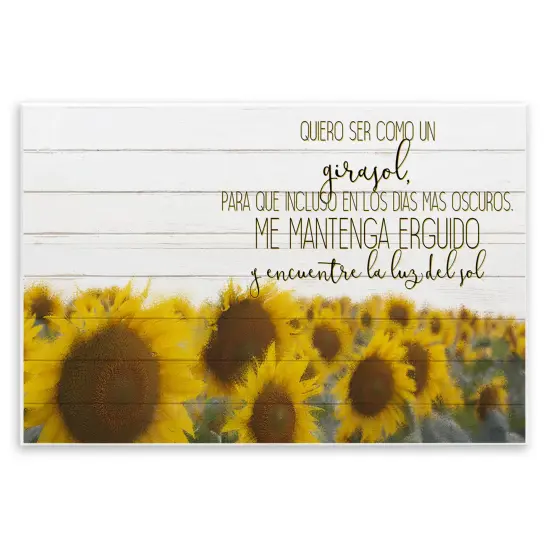 QUIERO SER COMO UN
girasol,
PARA QUE INCLUSO EN LOS DIAS MAS OSCUROS.
ME MANTENGA ERGUIDO
y encuentre la luz del sol